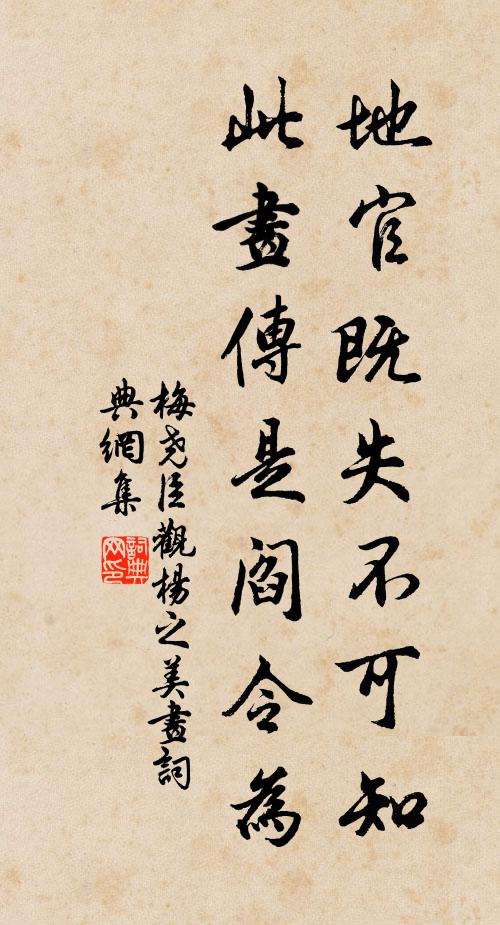 地官既失不可知
此畫傳是閻令為
梅堯臣觀楊之美畫詞
典網集
詞典
网印